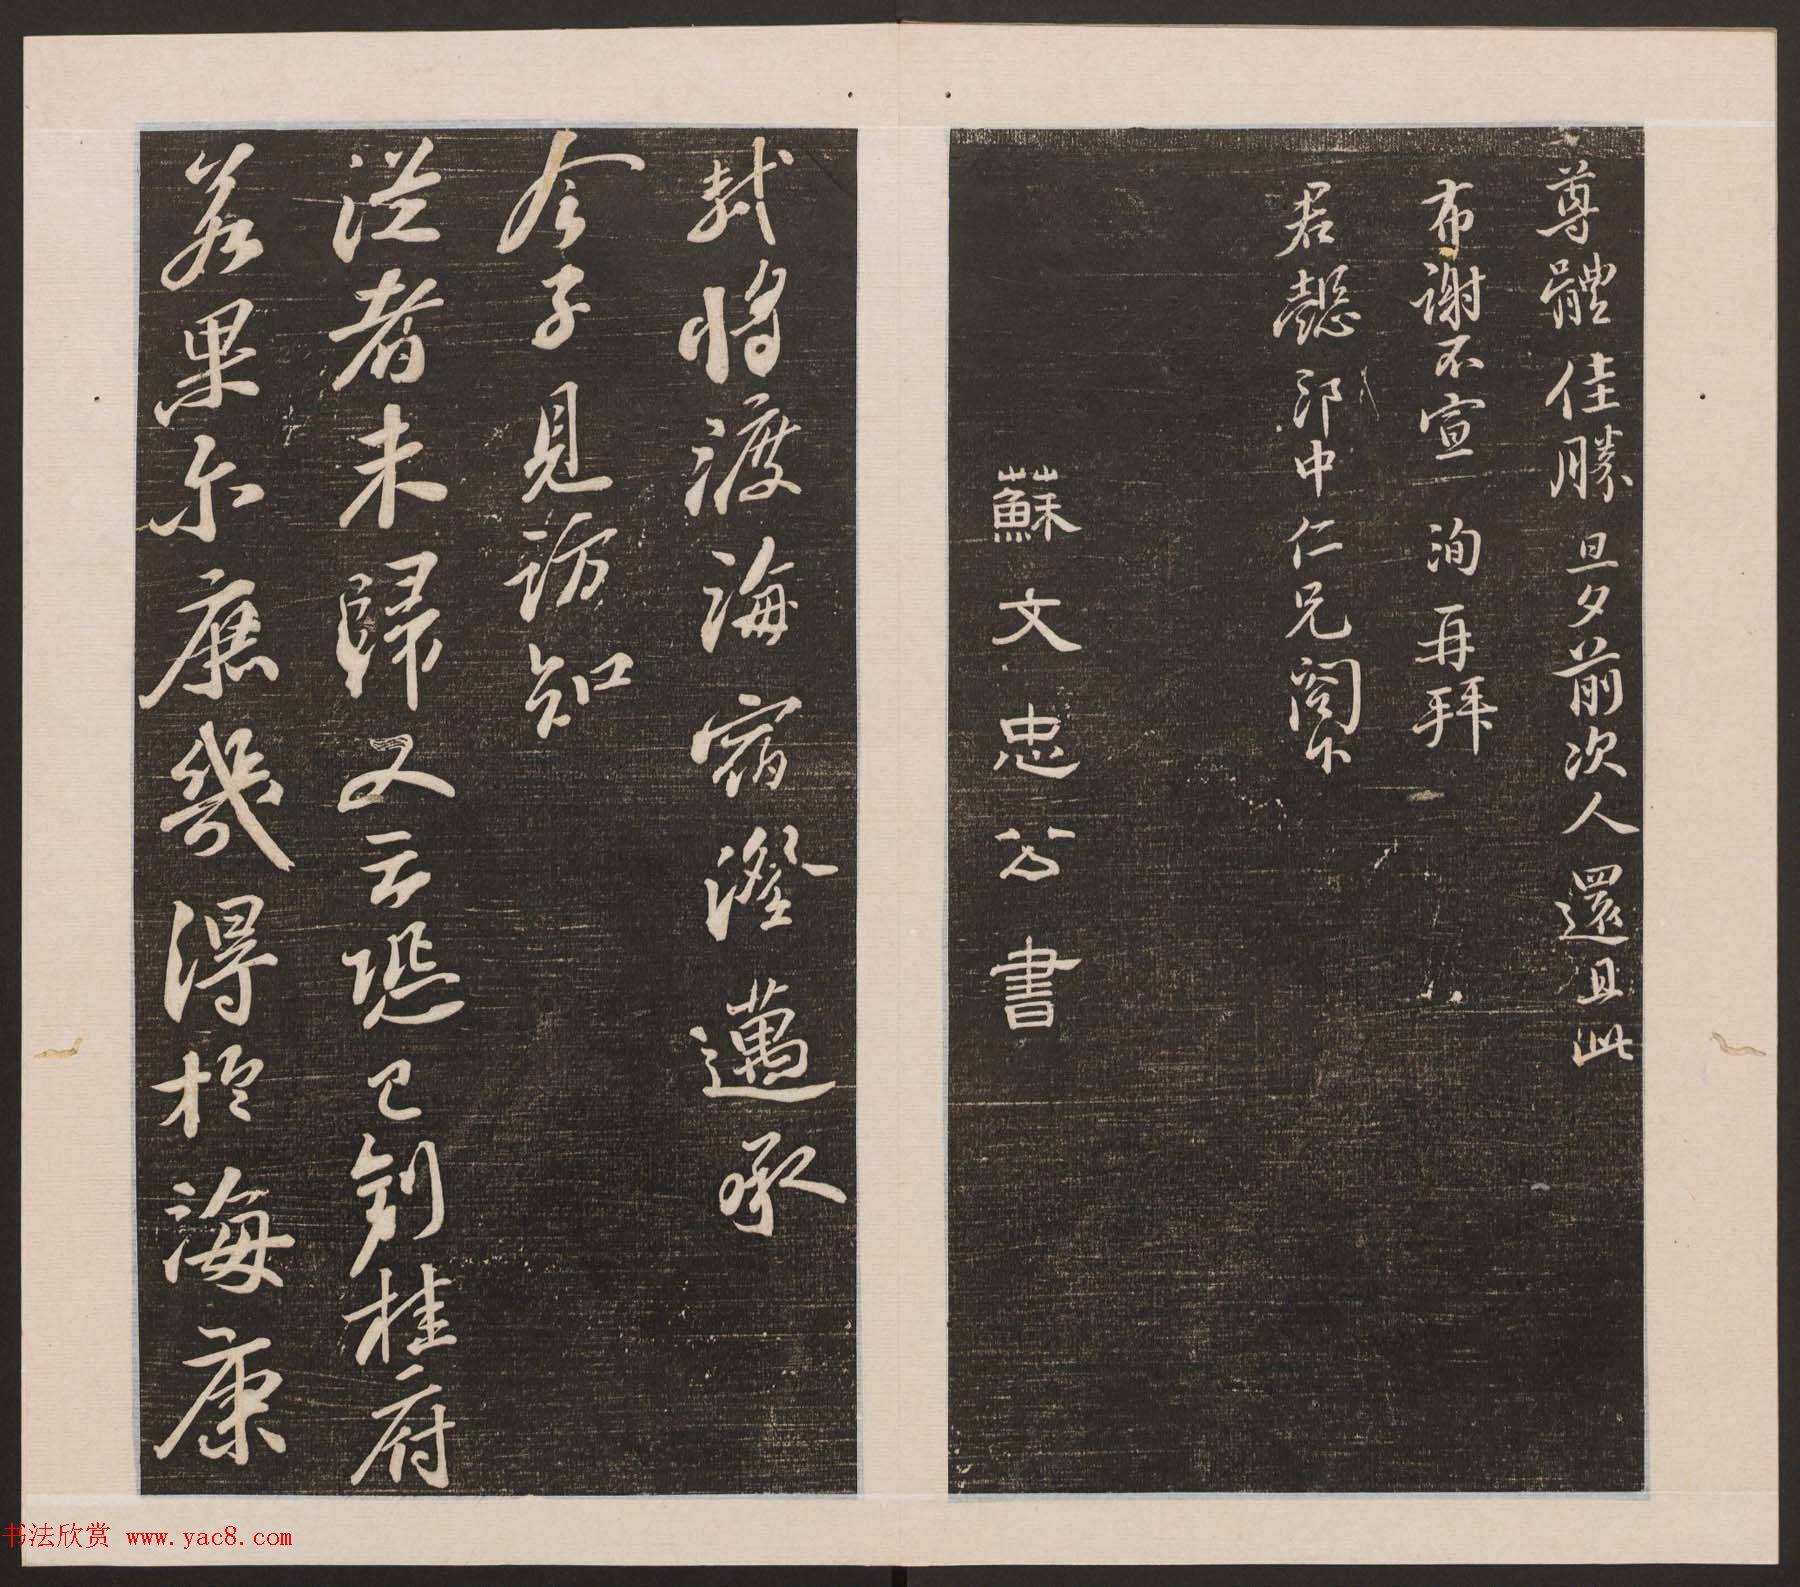 尊體佳勝旦夕前次人還且此
布謝不宣 洵再拜
君懿郎中仁兄閤下
蘇文忠公書
軾將渡海宿澄邁承
令子見訪知
從者未歸又云恐已到桂府
若果尓庶幾得於海康
书法欣赏 www.yac8.com